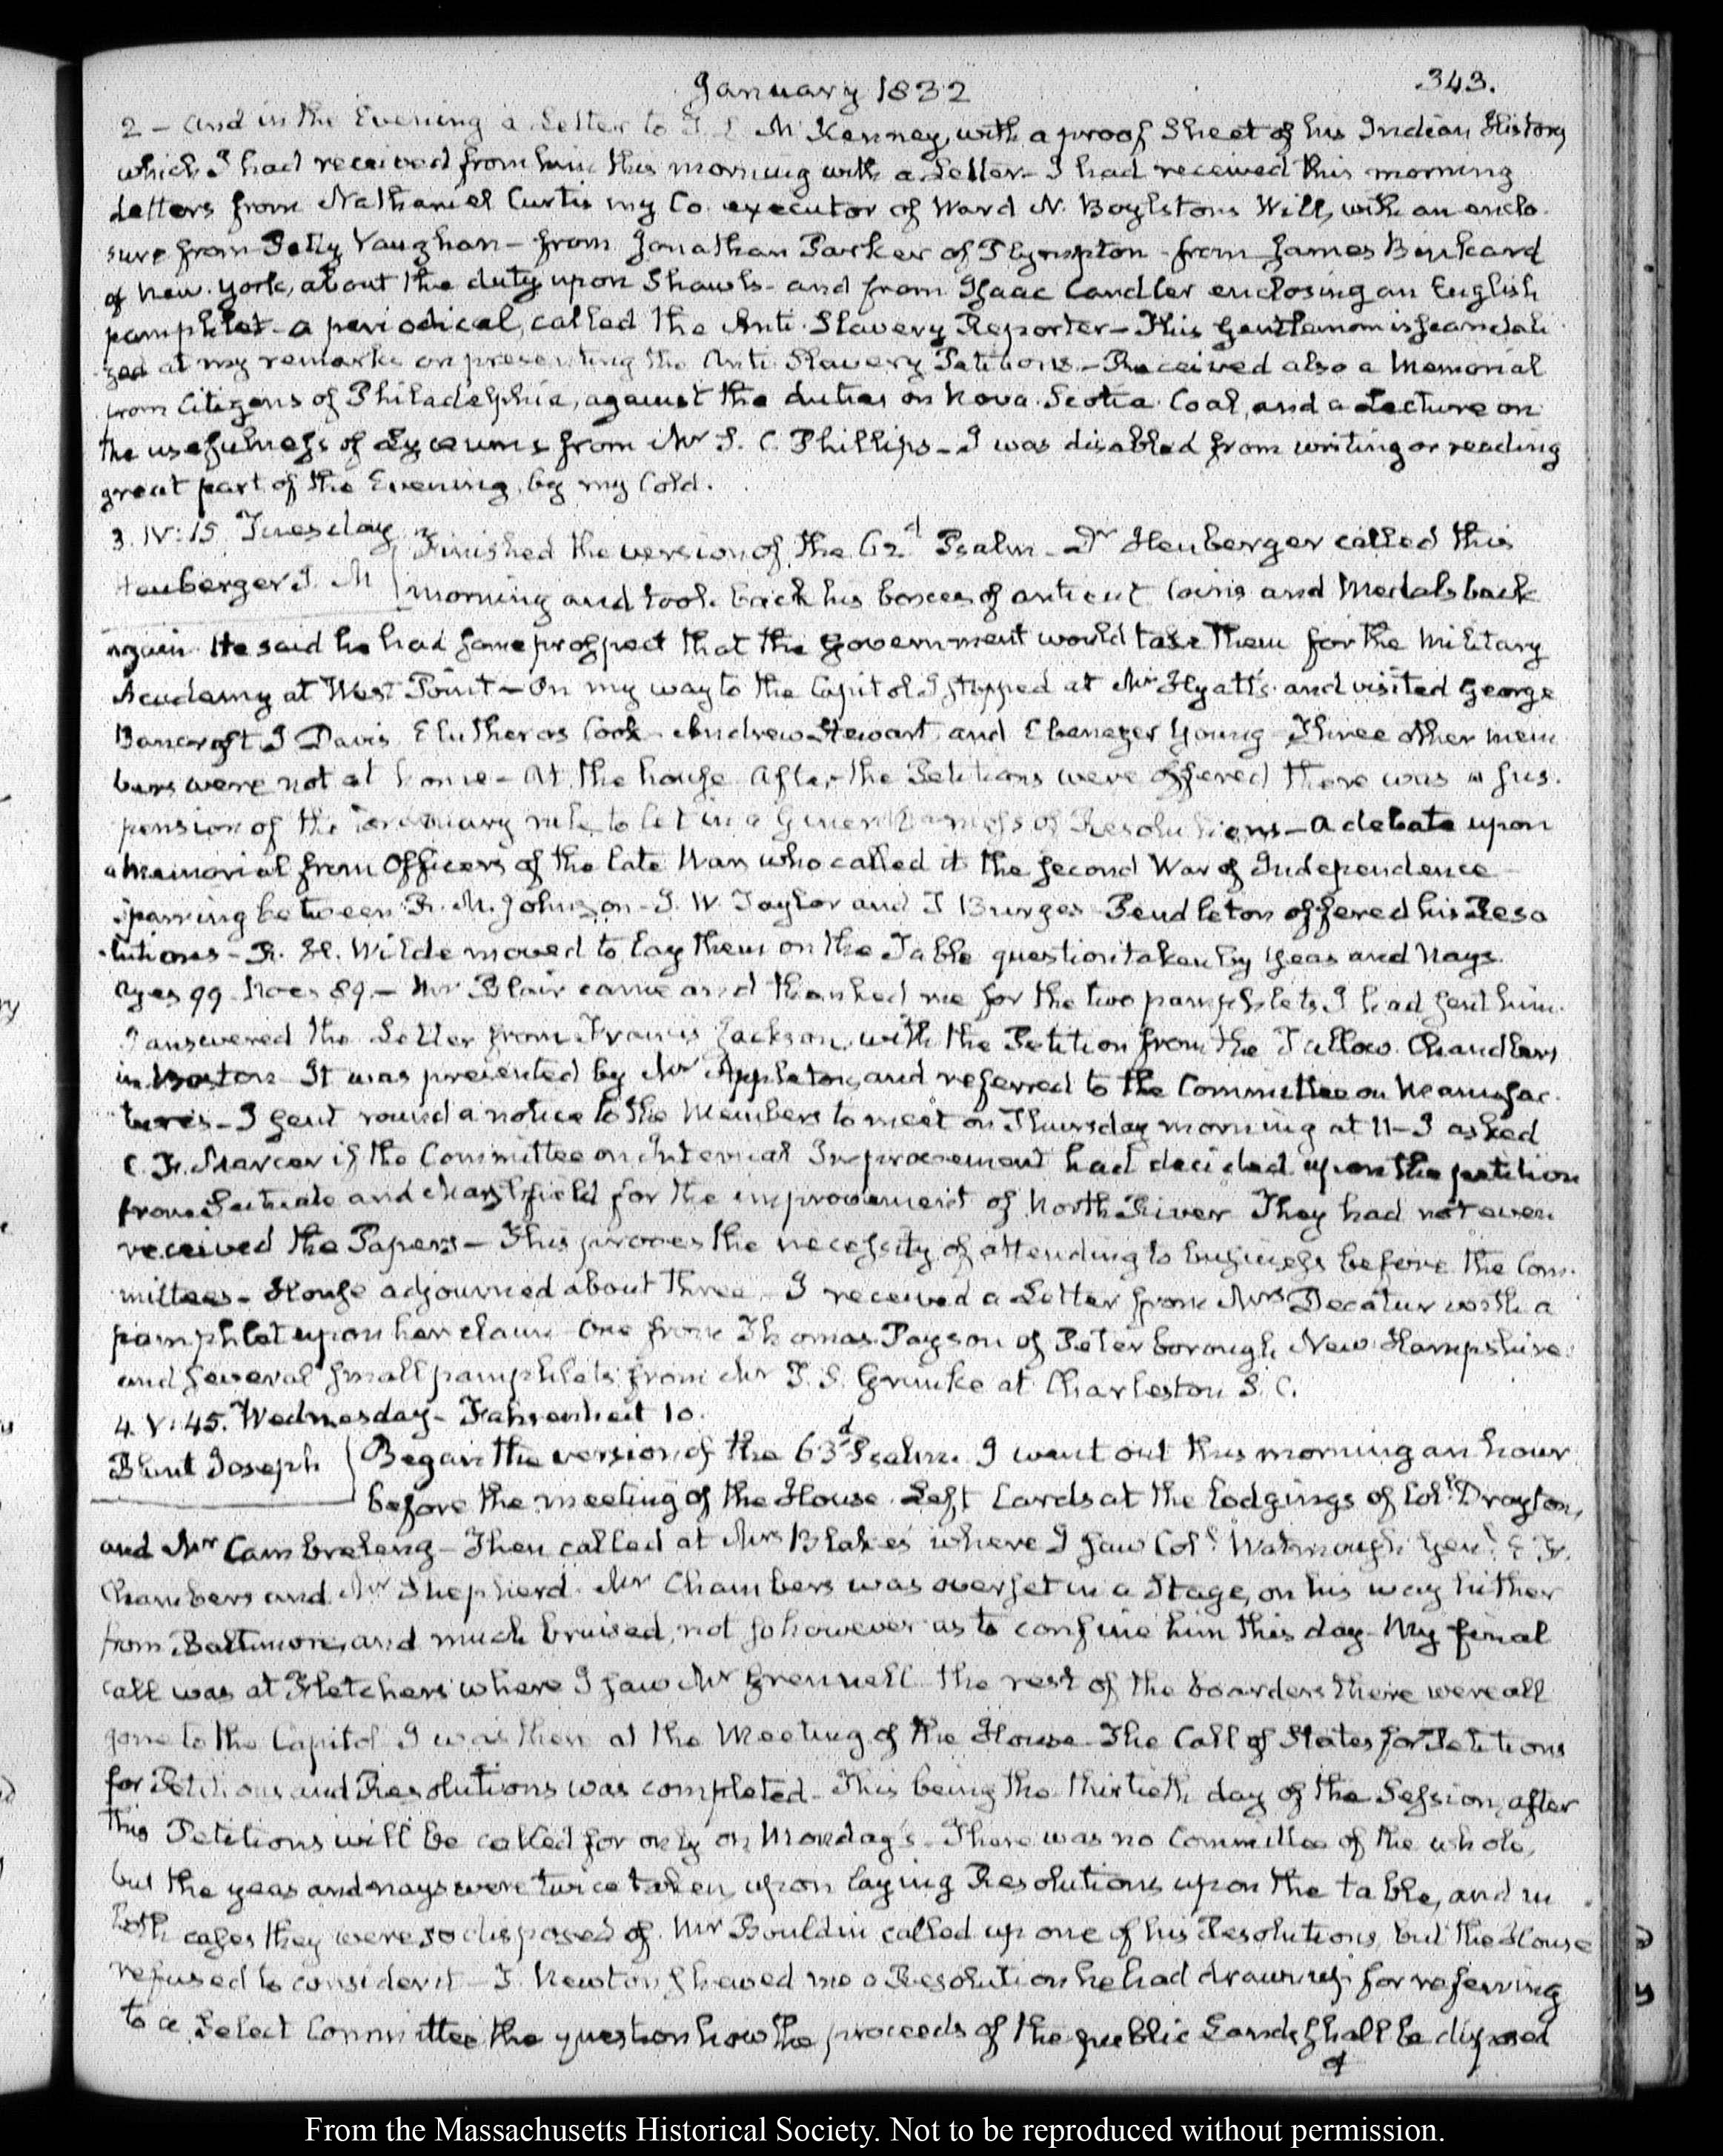 January 1832
343.
2 – and in the Evening a Letter to T. L. McKenney, with a proof Sheet of his Indian History
which I had received from him this morning with a Letter – I had received this morning
Letters from Nathaniel Curtis my Co. executor of Ward N. Boylstons Will, with an enclo-
sure from Petty Vaughan – from Jonathan Parker of Plympton – from James Bonkard
of New-York, about the duty upon Shawls – and from Isaac Candler enclosing an English
pamphlet – a periodical, called the Anti-Slavery Reporter – This Gentleman is scandali
zed at my remarks on presenting the Anti Slavery Petitions. – Received also a Memorial
from Citizens of Philadelphia, against the duties on Nova-Scotia Coal, and a Lecture on
the usefulness of Lyceums from Mr S. C. Phillips – I was disabled from writing or reading
great part of the Evening, by my Cold.
3. IV: 15. Tuesday
Finished the version of the 62d Psalm – Dr Heuberger called this
Heuberger J. M
morning and took back his boxes of antient Coins and Medals back
again. He said he had some prospect that the Government would take them for the Military
Academy at West-Point – On my way to the Capitol I stopped at Mr Hyatt's and visited George
Bancroft, J Davis, Elutheros Cook – Andrew Stewart, and Ebenezer Young – Three other mem
bers were not at home – At the house. After the Petitions were offered there was a sus-
pension of the ordinary rule to let in a General of Resolutions – A debate upon
a memorial from Officers of the late War who called it the second War of Independence –
sparring between R. M. Johnson – J. W. Taylor and T Burges – Pendleton offered his Reso
lutions – R. H. Wilde moved to lay them on the Table question taken by Yeas and Nays.
Ayes 99. Noes 89. – Mr Blair came and thanked me for the two pamphlets I had sent him.
I answered the Letter from Francis Jackson, with the Petition from the Tallow Chandlers
in Boston – It was presented by Mr Appleton, and referred to the Committee on Manufac-
tures – I sent round a notice to the Members to meet on Thursday morning at 11 – I asked
C. F. Mercer if the Committee on Internal Improvement had decided upon the petition
from Scituate and Marshfield for the improvement of North River. They had not even
received the Papers – This proves the necessity of attending to business before the Com-
mittees – House adjourned about three. I received a Letter from Mrs Decatur with a
pamphlet upon her claim – One from Thomas Payson of Peterborough, New-Hampshire
and several small pamphlets from Mr T. S. Grimke at Charleston S. C.
4. V: 45. Wednesday – Fahrenheit 10.
Blunt Joseph
Began the version of the 63d Psalm. I went out this morning an hour
before the meeting of the House. Left Cards at the lodgings of Coll. Drayton,
and Mr Cambreleng – Then called at Mrs Blake's where I saw Coll. Watmough, Genl.
Chambers and Mr Shepherd. Mr Chambers was overset in a Stage, on his way hither
from Baltimore, and much bruised, not so however as to confine him this day – My final
call was at Fletchers where I saw Mr Grennell – the rest of the boarders there were all
gone to the Capitol – I was then at the Meeting of the House – The Call of States for Petitions
for Petitions and Resolutions was completed – This being the thirtieth day of the Session, after
this Petitions will be called for only on Monday's – There was no Committee of the whole,
but the yeas and nays were twice taken, upon laying Resolutions upon the table, and in
both cases they were so disposed of. Mr Bouldin called up one of his Resolutions, but the House
refused to consider it – T. Newton shewed me a Resolution he had drawn up for referring
to a Select Committee the question how the proceeds of the public Lands shall be disposed
of
From the Massachusetts Historical Society. Not to be reproduced without permission.